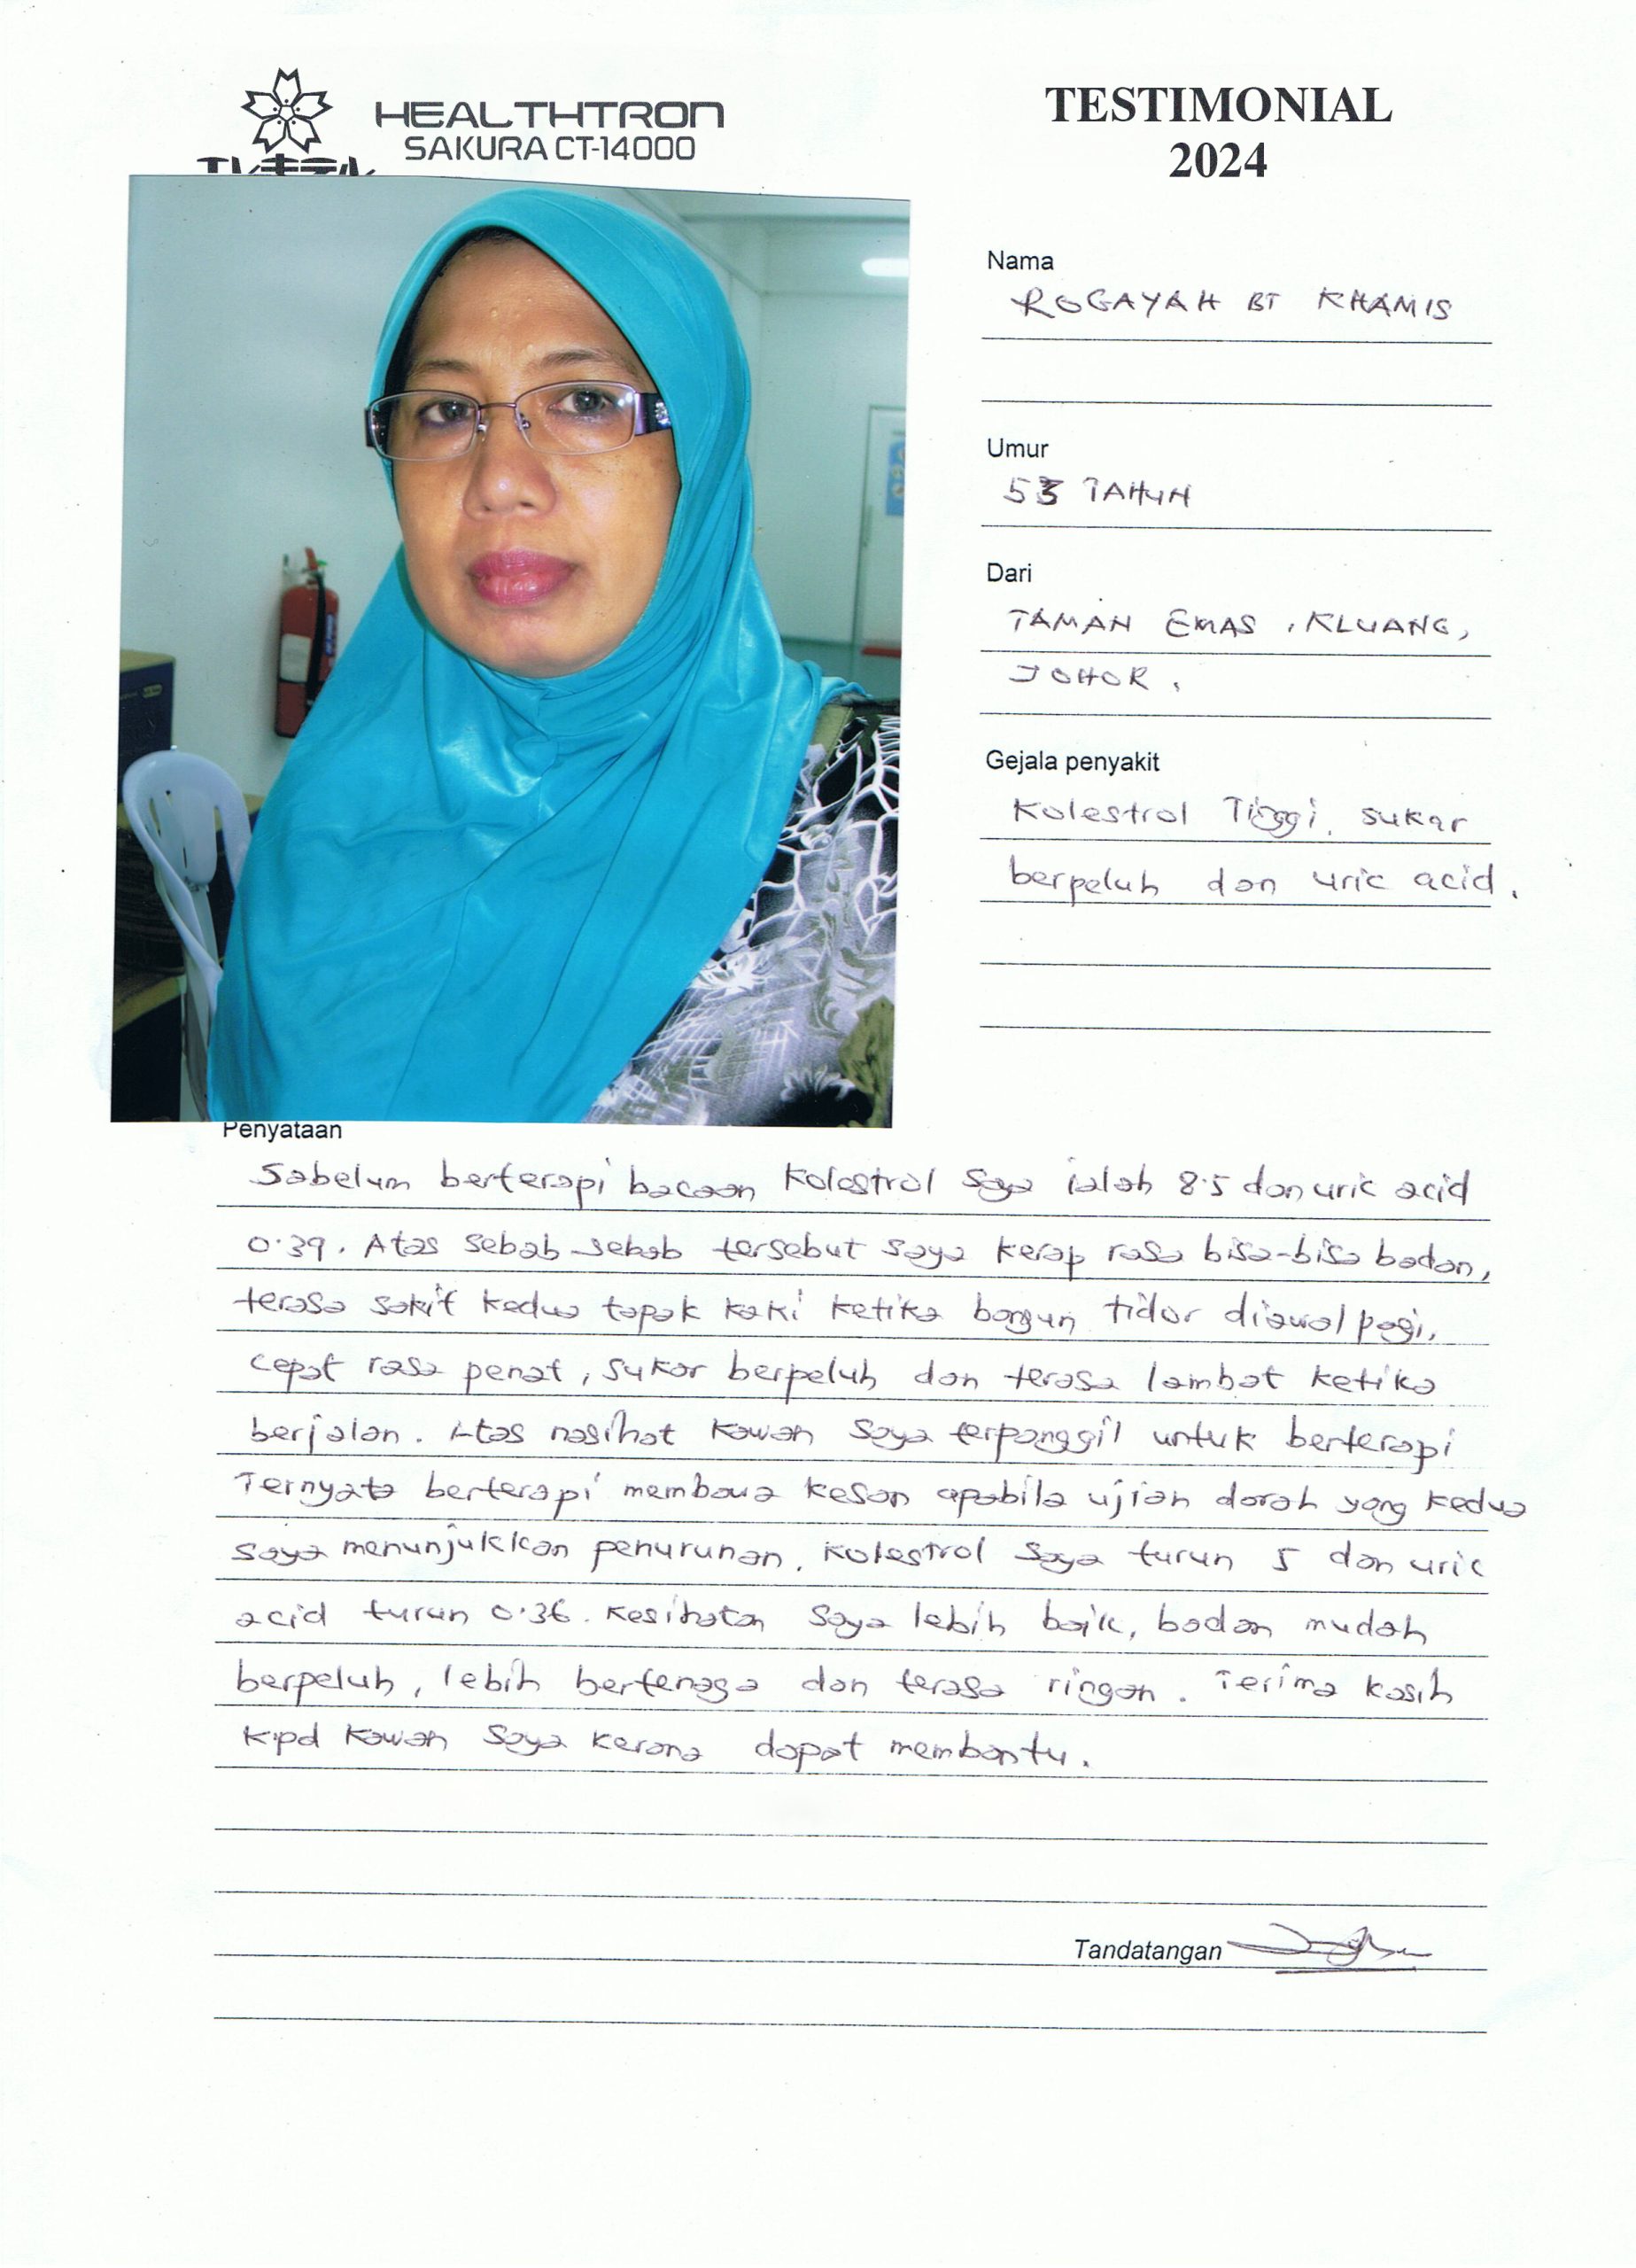 HEALTHTRON
SAKURA CT-14000
TESTIMONIAL
2024
Nama
ROGAYAH BT KHAMIS
Umur
53 TAHUN
Dari
TAMAN EMAS, KLUANG,
JOHOR.
Gejala penyakit
Kolestrol Tinggi, sukar
berpeluh dan uric acid.
Penyataan
Sabelum berterapi bacaan Kolestrol saya ialah 8.5 dan uric acid
0.39. Atas sebab-sebab tersebut saya kerap rasa bisa-bisa badan,
terasa sakit kedua tapak kaki ketika bangun tidur diawal pagi,
cepat rasa penat, sukar berpeluh dan terasa lambat ketika
berjalan. Atas nasihat kawan saya terpanggil untuk berterapi
Ternyata berterapi membawa kesan apabila ujian darah yang kedua
saya menunjukkan penurunan. Kolestrol saya turun 5 dan uric
acid turun 0.36. Kesihatan saya lebih baik, badan mudah
berpeluh, lebih bertenaga dan terasa ringan. Terima kasih
kpd kawan saya kerana dapat membantu.
Tandatangan